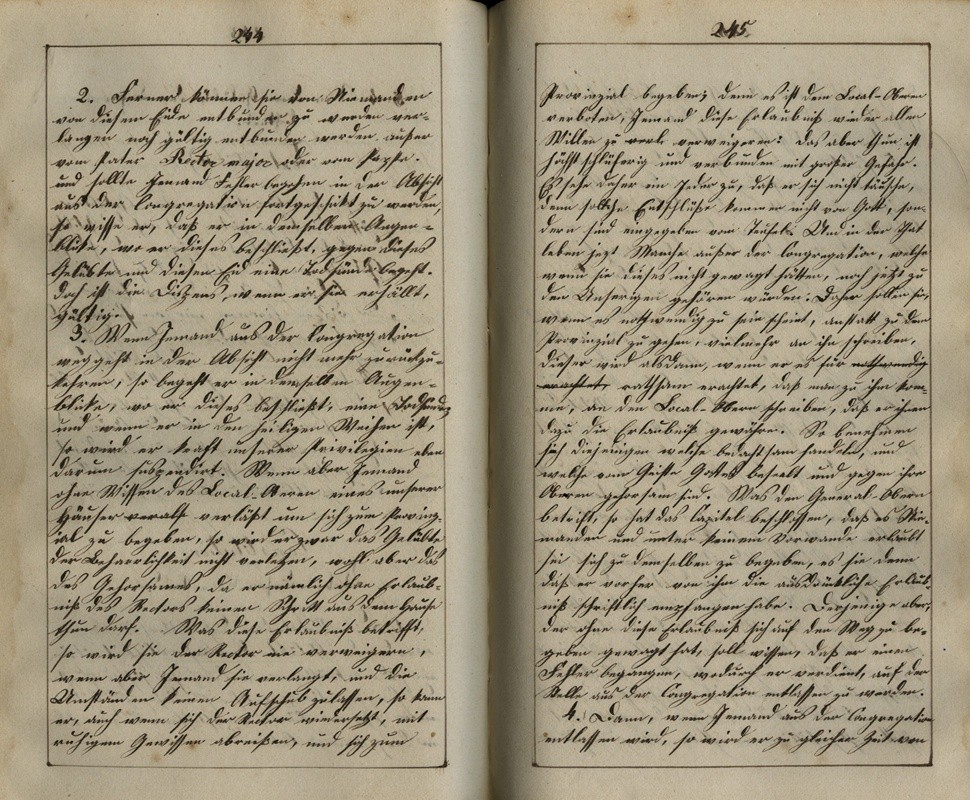 244
2. Ferner können sie von Niemanden
von diesem Eide entbunden zu werden ver-
langen noch gültig entbunden werden außer
vom Pater Rector major oder vom Papste.
und sollte Jemand Fehler begehen in der Absicht
aus der Congregation fortgeschickt zu werden,
so wisse er, daß er in demselben Augen-
blicke, wo er dieses beschließt, gegen dieses
Gelübte und diesen Eid eine Todsünde begeht.
Doch ist die Dispens, wenn er sie erhällt,
gültig.
3. Wenn Jemand aus der Congregation
weggeht in der Absicht nicht mehr zurückzu-
kehren, so begeht er in demselben Augen-
blicke, wo er dieses beschließt, eine Todsünde
und wenn er in den heiligen Weihen ist,
so wird er kraft unserer Privilegien eben
darum suspendirt. Wenn aber Jemand
ohne Wissen des Local-Oberen eines unserer
Häuser verläßt um sich zum Provinz-
ial zu begeben, so wird er zwar das Gelübte
der Beharrlichkeit nicht verletzen, wohl aber das
des Gehorsames, da er nämlich ohne Erlaub-
niß des Rectors keinen Schritt aus dem Hause
thun darf. Was diese Erlaubniß betrifft,
so wird sie der Rector nie verweigern,
wenn aber Jemand sie verlangt, und die
Umständen keinen Aufschub zulassen, so kann
er, auch wenn sich der Rector wiedersetzt, mit
ruhigem Gewissen abreißen, und sich zum
245
Provinzial begeben; denn es ist dem Local-Oberen
verboten, Jemand diese Erlaubniß wieder allen
Willen zu verweigeren: das aber thun ist
höchst schlüpferig und verbunden mit großer Gefahr.
Es sehe daher ein Jeder zu, daß er sich nicht täusche,
denn solche Entschlüße kommen nicht von Gott, son-
dern sind eingegeben vom Teufel. Und in der That
leben jetzt Manche außer der Congregation, welche
wenn sie dieses nicht gewagt hätten, noch jetzt zu
den Unserigen gehören würden. Daher sollen sie,
wenn es nothwendig zu sein scheint, anstatt zu dem
Provinzial zu gehen, vielmehr an ihn schreiben,
dieser wird alsdann, wenn er es für nothwendig
erachtet, rathsam erachtet, daß man zu ihm kom-
me, an den Local-Obern schreiben, daß er ihnen
dazu die Erlaubniß gewähre. So benehmen
sich diejenigen welche bedachtsam handeln, und
welche vom Geiste Gottes beseelt und gegen ihre
Obern gehorsam sind. Was den General-Obern
betrifft, so hat das Capitel beschlossen, daß es Nie-
manden und unter keinem Vorwande erlaubt
sei sich zu demselben zu begeben, es sie denn
daß er vorher von ihm die ausdrückliche Erlaub-
niß schriftlich empfangen habe. Derjenige aber,
der ohne diese Erlaubniß sich auf den Weg zu be-
geben gewagt hat, soll wissen, daß er einen
Fehler begangen, wodurch er verdient, auf der
Stelle aus der Congregation entlassen zu werden.
4. Dann, wenn Jemand aus der Congregation
entlassen wird, so wird er zu gleicher Zeit von